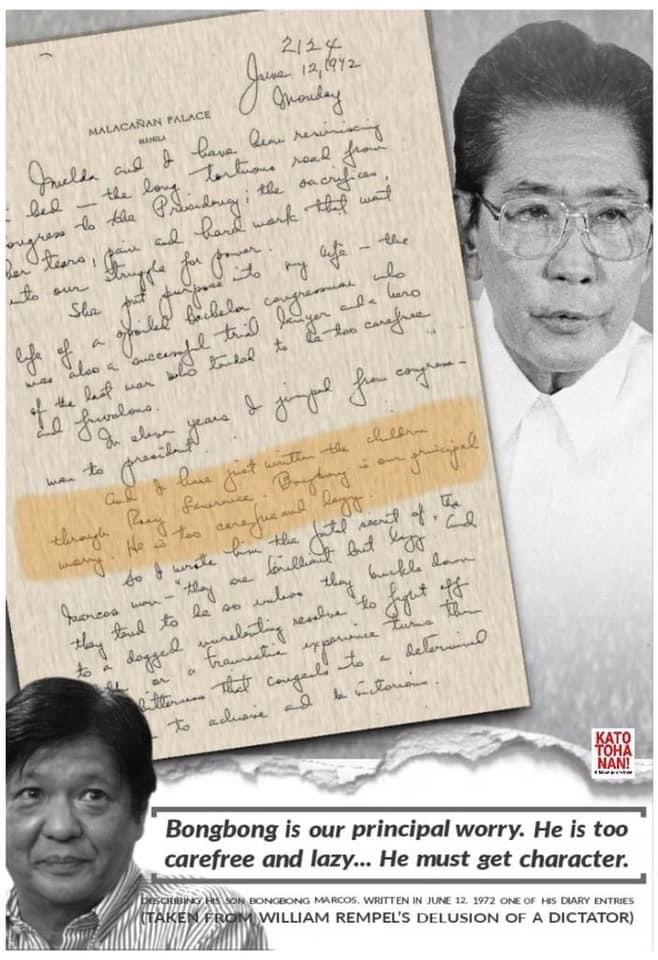 2124
June 12, 1972
Monday
MALACAÑAN PALACE
MANILA
Imelda and I have been reminiscing
in bed – the long tortuous road from
ongress to the Presidency; the sacrifices,
her tears, pain and hard work that went
into our struggle for power.
She put purpose into my life – the
life of a spoiled bachelor congressman who
was also a successful trial lawyer and a hero
of the last war who tended to be too carefree
and frivolous.
In eleven years I jumped from congress-
man to president.
And I have just written the children
through Rory Bongbong is our principal
worry. He is too carefree and lazy.
So I wrote him the fatal secret of the
Marcos men – "they are brilliant but lazy. And
they tend to be so unless they buckle down
to a dogged unrelenting resolve to fight off
or a traumatic experience turns them
bitterness that congeals to a determined
to achieve and be victorious.
KATO
TOHA
NAN!
Bongbong is our principal worry. He is too
carefree and lazy... He must get character.
DESCRIBING HIS SON BONGBONG MARCOS, WRITTEN IN JUNE 12, 1972 ONE OF HIS DIARY ENTRIES
(TAKEN FROM WILLIAM REMPEL'S DELUSION OF A DICTATOR)